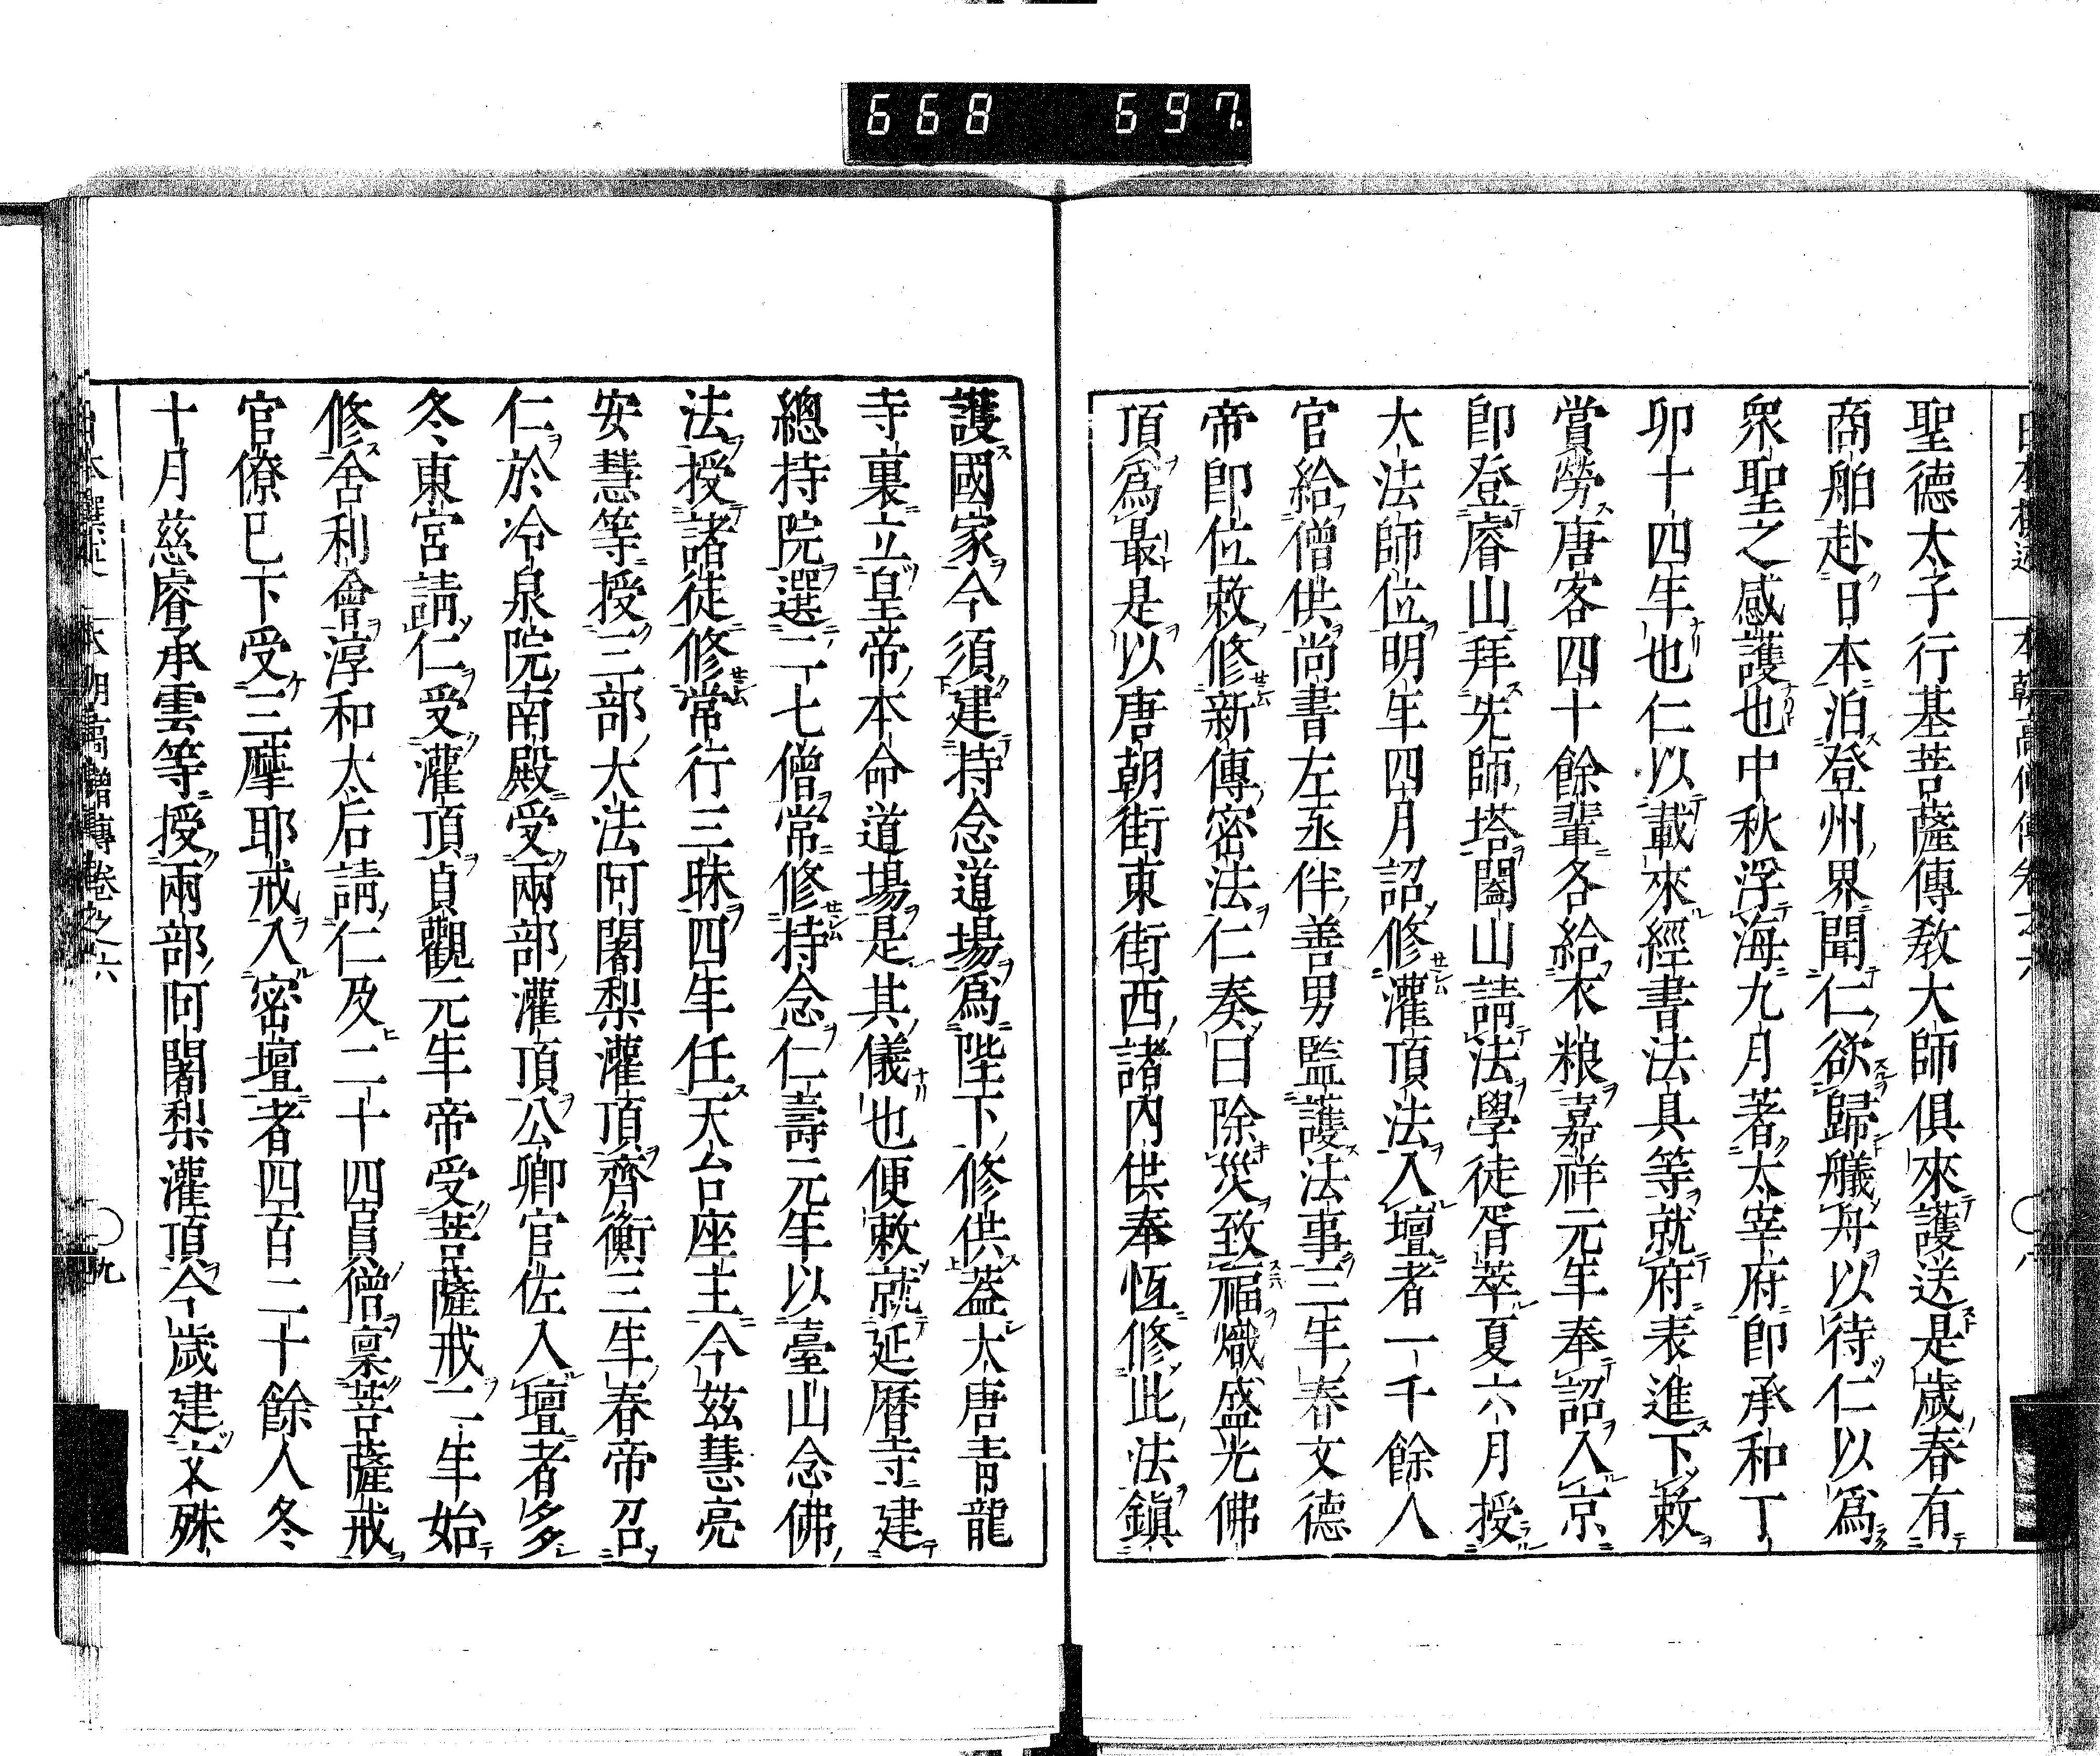 668 697
聖德太子行基菩薩傳教大師俱來護送是歲春有
商舶赴日本泊登州界聞仁欲歸艤舟以待仁以爲
衆聖之感護也中秋浮海九月著太宰府卽承和丁
卯十四年也仁以載來經書法具等就府表進下敕
賞勞唐客四十餘輩各給衣粮嘉祥元年奉詔入京
卽登睿山拜先師塔闔山請法學徒胥萃夏六月授
大法師位明年四月詔修灌頂法入壇者一千餘人
官給僧供尚書左丞伴善男監護法事三年春文德
帝卽位敕修新傳密法仁奏曰除災致福熾盛光佛
頂爲最是以唐朝街東街西諸內供奉恆修此法鎭
護國家今須建持念道場爲陛下修供蓋大唐靑龍
寺裏立皇帝本命道場是其儀也便敕就延曆寺建
總持院選二七僧常修持念仁壽元年以臺山念佛
法授諸徒修常行三昧四年任天台座主今茲慧亮
安慧等授三部大法阿闍梨灌頂齊衡三年春帝召
仁於冷泉院南殿受兩部灌頂公卿官佐入壇者多
冬東宮請仁受灌頂貞觀元年帝受菩薩戒二年始
修舍利會淳和太后請仁及二十四員僧稟菩薩戒
官僚已下受三摩耶戒入密壇者四百二十餘人冬
十月慈睿承雲等授兩部阿闍梨灌頂今歲建文殊
本朝高僧傳卷之六
九